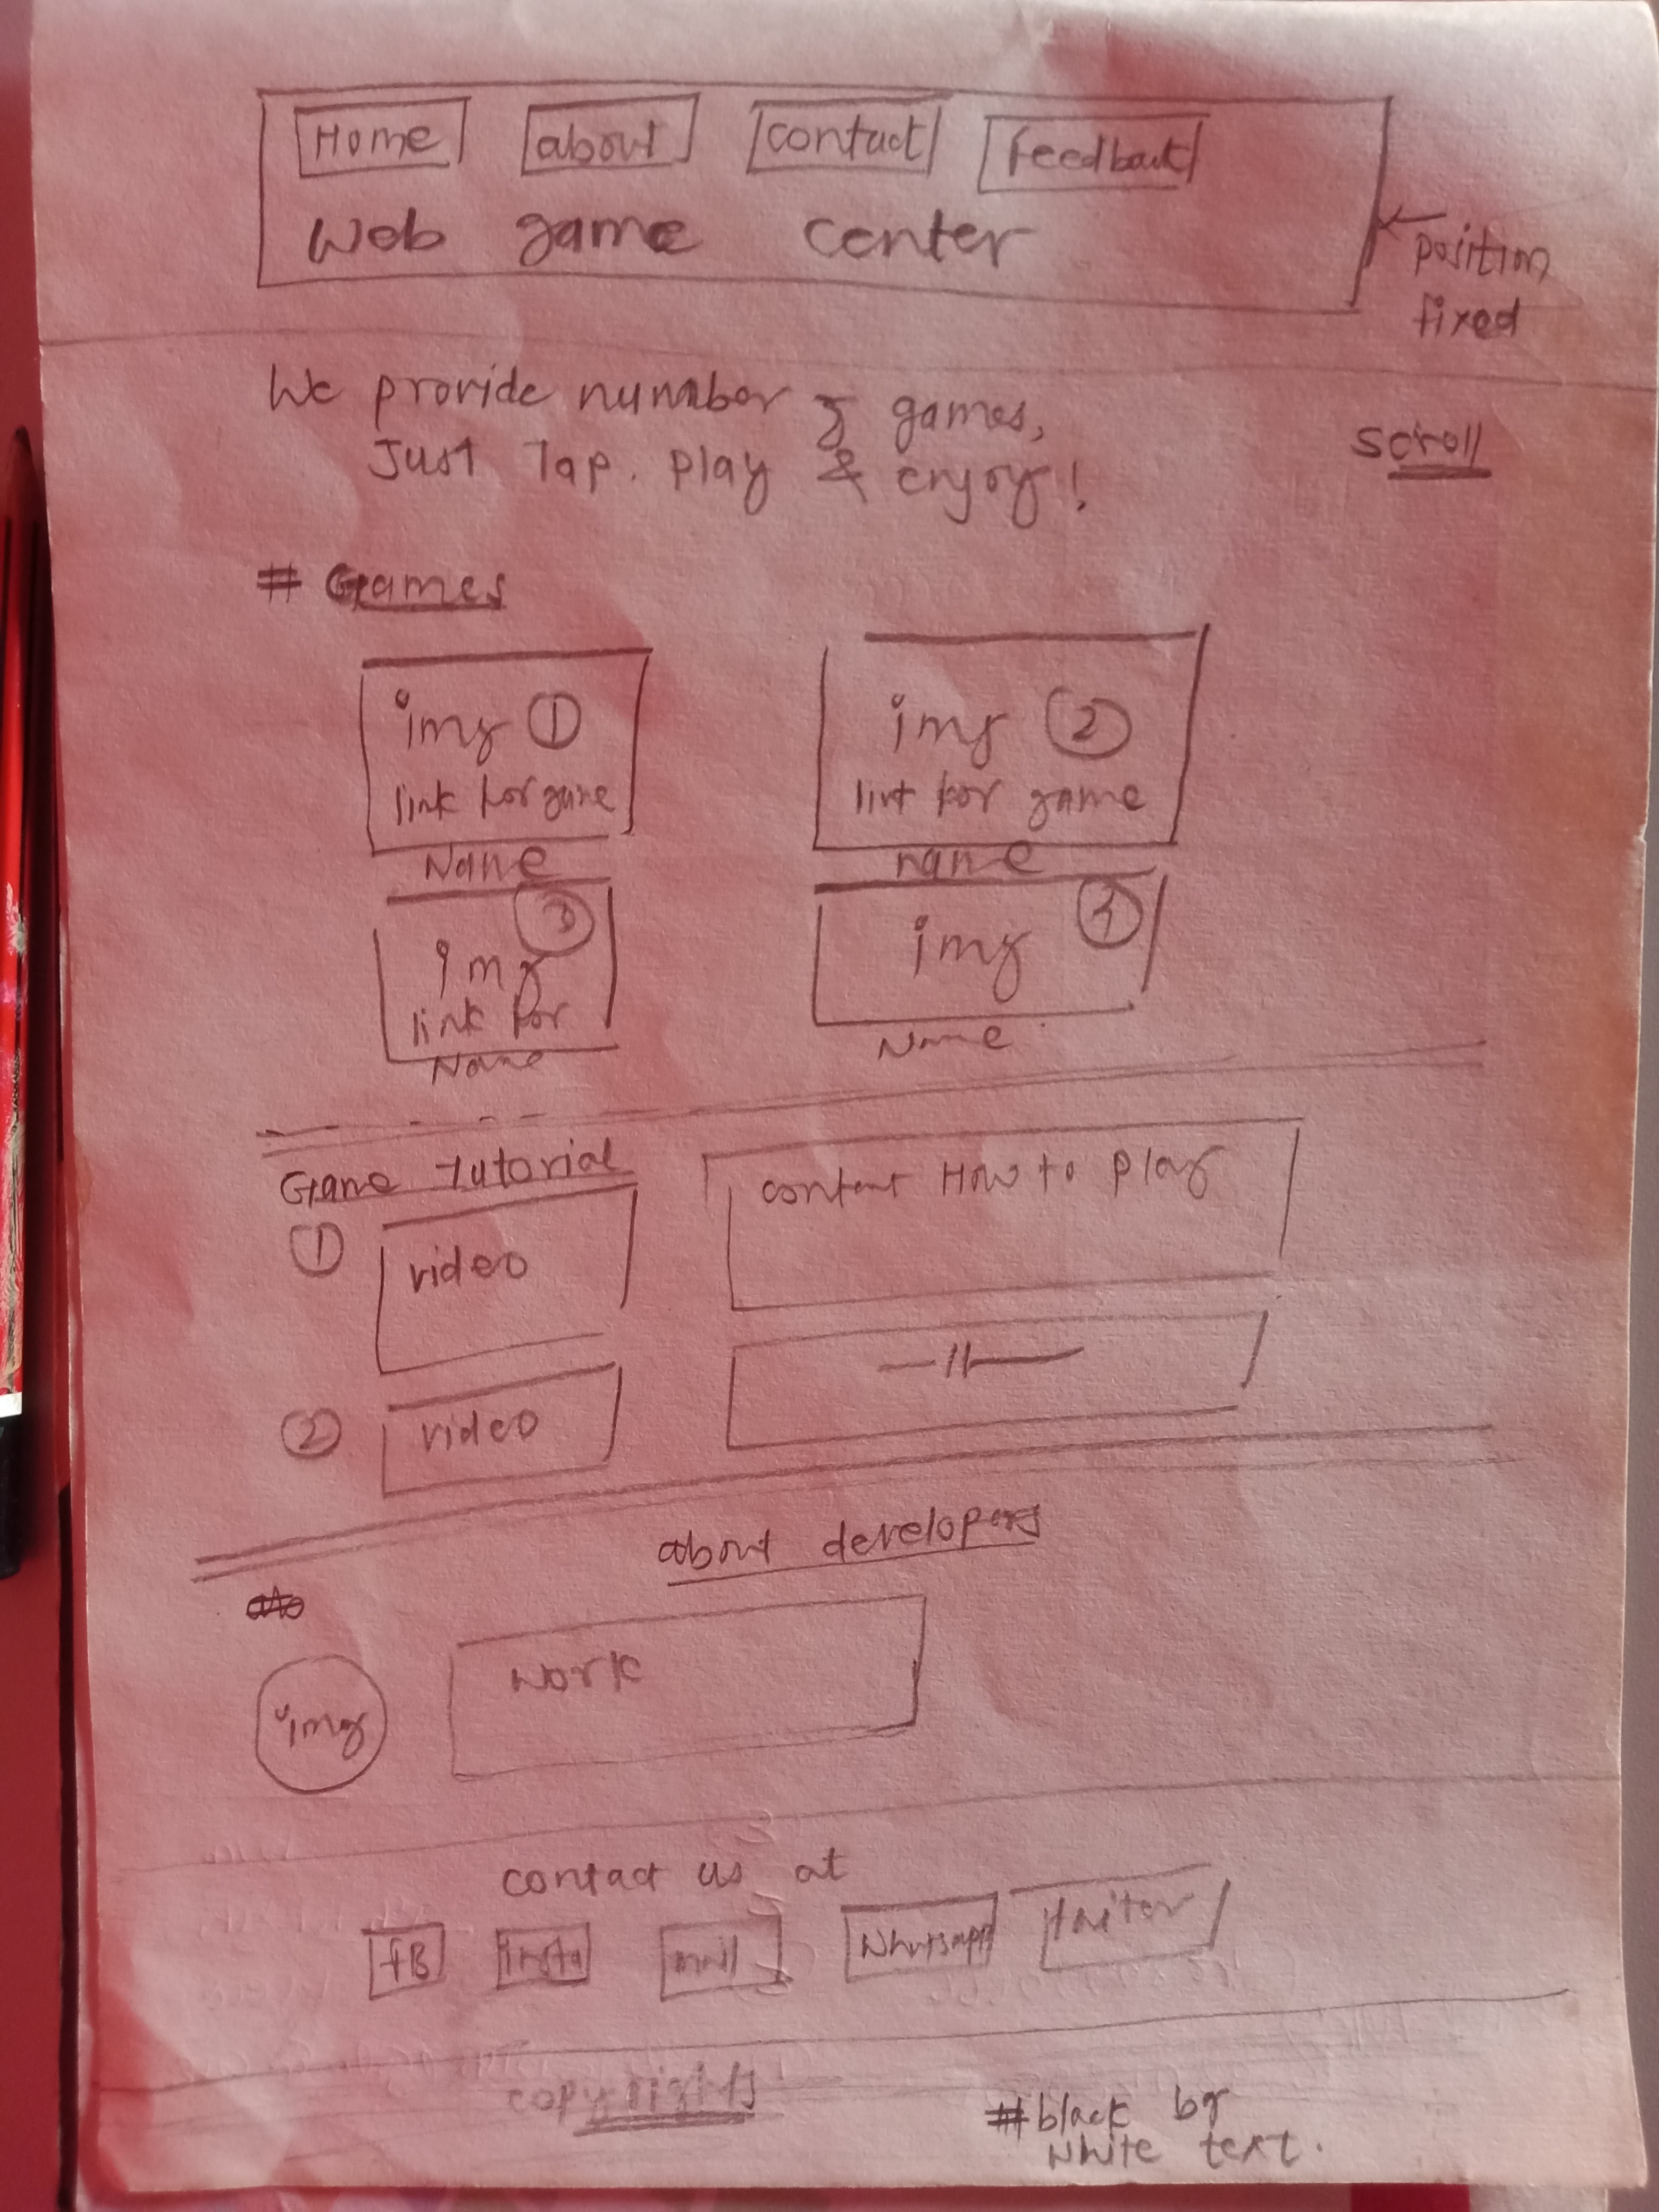 Home about contact Feedback
Web game center
position
fixed
We provide number of games,
Just Tap. play & enjoy!
scroll
# Games
img ① img ②
link for game link for game
Name name
③ img img ④
link for
Name Name
Game Tutorial content How to play
① video
—11—
② video
about developers
img work
contact us at
FB insta mail Whatsapp twiter
copyrights
# black bg
white text.